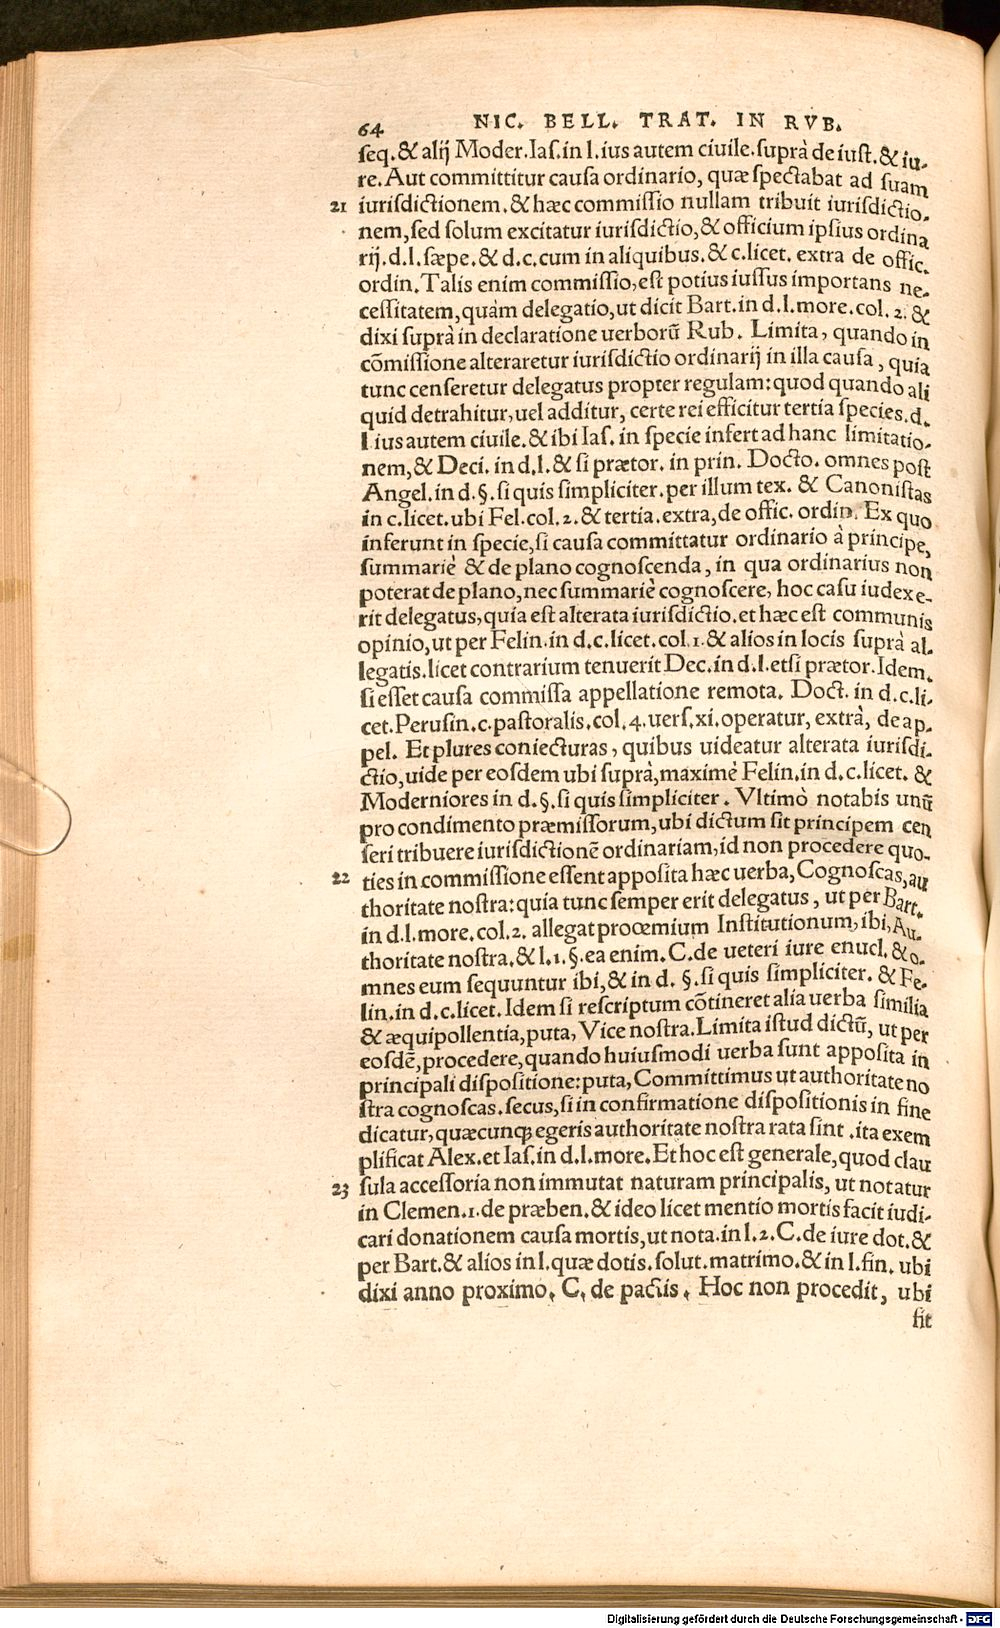 64 NIC. BELL. TRAT. IN RVB.
ſeq. & alij Moder. Iaſ. in l. ius autem ciuile. ſuprà de iuſt. & iu-
re. Aut committitur cauſa ordinario, quæ ſpectabat ad ſuam
21 iuriſdictionem. & hæc commiſſio nullam tribuit iuriſdictio-
nem, ſed ſolum excitatur iuriſdictio, & officium ipſius ordina
rij. d. l. ſæpe. & d. c. cum in aliquibus. & c. licet. extra de offic.
ordin. Talis enim commiſſio, eſt potius iuſſus importans ne-
ceſſitatem, quàm delegatio, ut dicit Bart. in d. l. more. col. 2. &
dixi ſuprà in declaratione uerborũ Rub. Limita, quando in
cõmiſſione alteraretur iuriſdictio ordinarij in illa cauſa, quia
tunc cenſeretur delegatus propter regulam: quod quando ali
quid detrahitur, uel additur, certe rei efficitur tertia ſpecies. d.
l. ius autem ciuile. & ibi Iaſ. in ſpecie infert ad hanc limitatio-
nem, & Deci. in d. l. & ſi prætor. in prin. Docto. omnes poſt
Angel. in d. §. ſi quis ſimpliciter. per illum tex. & Canoniſtas
in c. licet. ubi Fel. col. 2. & tertia. extra, de offic. ordin. Ex quo
inferunt in ſpecie, ſi cauſa committatur ordinario à principe,
ſummariè & de plano cognoſcenda, in qua ordinarius non
poterat de plano, nec ſummariè cognoſcere, hoc caſu iudex e-
rit delegatus, quia eſt alterata iuriſdictio. et hæc eſt communis
opinio, ut per Felin. in d. c. licet. col. 1. & alios in locis ſuprà al-
legatis. licet contrarium tenuerit Dec. in d. l. etſi prætor. Idem,
ſi eſſet cauſa commiſſa appellatione remota. Doct. in d. c. li-
cet. Peruſin. c. paſtoralis. col. 4. uerſ. xi. operatur, extrà, de ap-
pel. Et plures coniecturas, quibus uideatur alterata iuriſdi-
ctio, uide per eoſdem ubi ſuprà, maximè Felin. in d. c. licet. &
Moderniores in d. §. ſi quis ſimpliciter. Vltimò notabis unũ
pro condimento præmiſſorum, ubi dictum ſit principem cen
ſeri tribuere iuriſdictionẽ ordinariam, id non procedere quo-
22 ties in commiſſione eſſent appoſita hæc uerba, Cognoſcas, au
thoritate noſtra: quia tunc ſemper erit delegatus, ut per Bart.
in d. l. more. col. 2. allegat procœmium Inſtitutionum, ibi, Au-
thoritate noſtra. & l. 1. §. ea enim. C. de ueteri iure enucl. & o-
mnes eum ſequuntur ibi, & in d. §. ſi quis ſimpliciter. & Fe-
lin. in d. c. licet. Idem ſi reſcriptum cõtineret alia uerba ſimilia
& æquipollentia, puta, Vice noſtra. Limita iſtud dictũ, ut per
eoſdẽ, procedere, quando huiuſmodi uerba ſunt appoſita in
principali diſpoſitione: puta, Committimus ut authoritate no
ſtra cognoſcas. ſecus, ſi in confirmatione diſpoſitionis in fine
dicatur, quæcunqꝫ egeris authoritate noſtra rata ſint. ita exem
plificat Alex. et Iaſ. in d. l. more. Et hoc eſt generale, quod clau
23 ſula acceſſoria non immutat naturam principalis, ut notatur
in Clemen. 1. de præben. & ideo licet mentio mortis facit iudi-
cari donationem cauſa mortis, ut nota. in l. 2. C. de iure dot. &
per Bart. & alios in l. quæ dotis. ſolut. matrimo. & in l. fin. ubi
dixi anno proximo. C. de pactis. Hoc non procedit, ubi
ſit
Digitalisierung gefördert durch die Deutsche Forschungsgemeinschaft - DFG